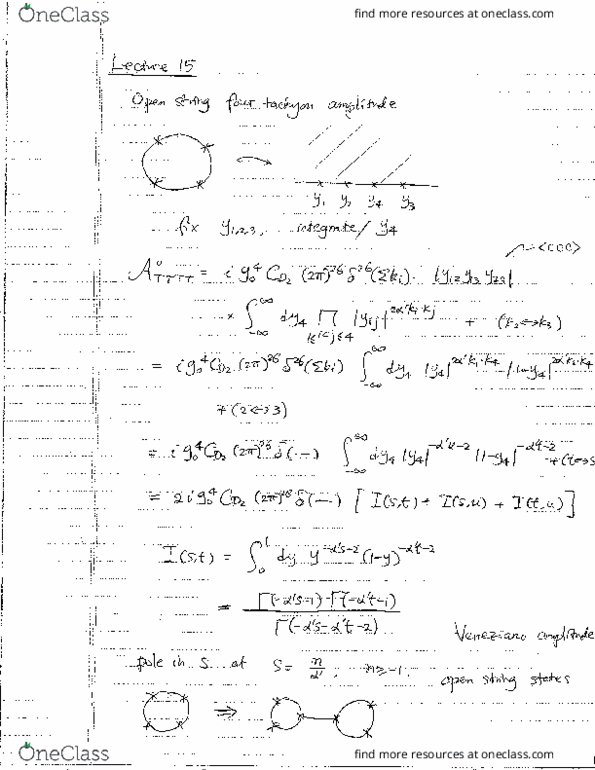 OneClass
find more resources at oneclass.com
Lecture 15
Open string four tachyon amplitude
y₁ y₂ y₄ y₃
fix y₁,₂,₃, integrate / y₄
~<ccc>
A⁰_TTTT = i g₀⁴ C_D₂ (2π)²⁶ δ²⁶(Σkᵢ) · |y₁₂ y₁₃ y₂₃|
× ∫_{-∞}^{∞} dy₄ ∏_{1≤i<j≤4} |yᵢⱼ|^{2α'kᵢ·kⱼ} + (k₂↔k₃)
= i g₀⁴ C_D₂ (2π)²⁶ δ²⁶(Σkᵢ) ∫_{-∞}^{∞} dy₄ |y₄|^{2α'k₁·k₄} |1-y₄|^{2α'k₂·k₄}
+ (2↔3)
= i g₀⁴ C_D₂ (2π)²⁶ δ(...) ∫_{-∞}^{∞} dy₄ |y₄|^{-α'u-2} |1-y₄|^{-α't-2} + (t↔s
= 2i g₀⁴ C_D₂ (2π)²⁶ δ(...) [ I(s,t) + I(s,u) + I(t,u) ]
I(s,t) = ∫₀¹ dy y^{-α's-2} (1-y)^{-α't-2}
= Γ(-α's-1) · Γ(-α't-1) / Γ(-α's-α't-2)
Veneziano amplitude
pole in s at s = n/α', n ≥ -1.
open string states
⇒
OneClass
find more resources at oneclass.com